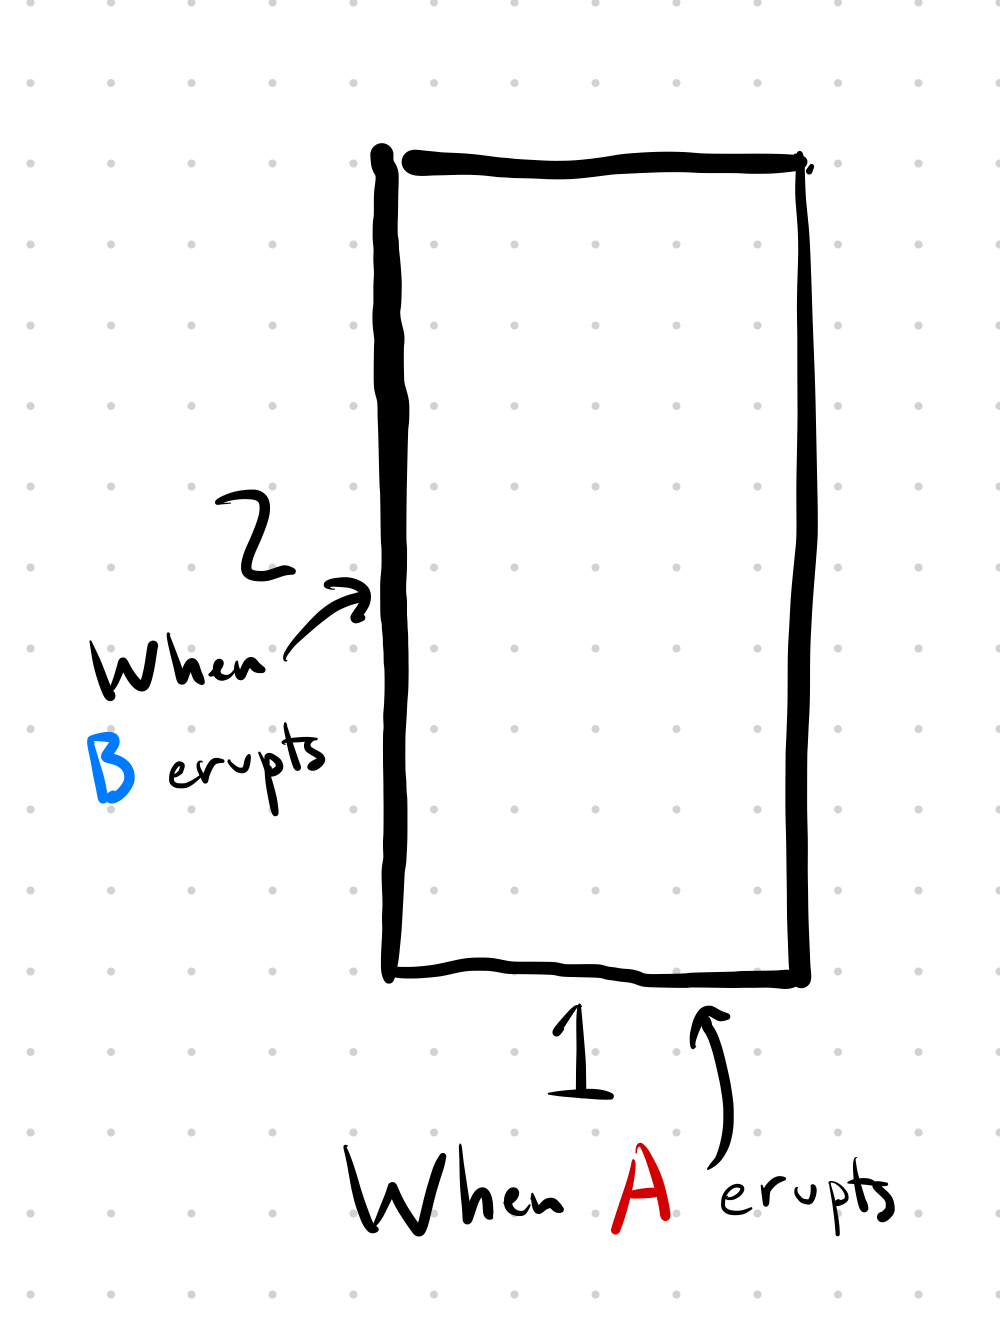 2
When
B erupts
1
When A erupts